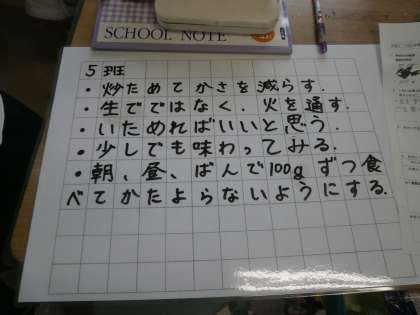 SCHOOL NOTE
5班
・炒めてかさを減らす.
・生でではなく、火を通す.
・いためればいいと思う.
・少しでも味わってみる.
・朝、昼、ばんで100gずつ食
べてかたよらないようにする.